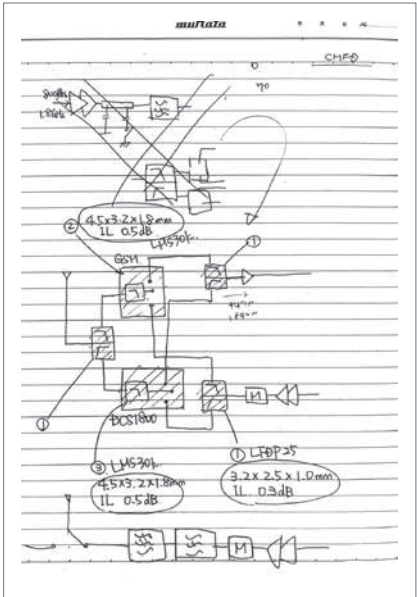 muRata
CMF①
0
90
1.8GHz
②
4.5×3.2×1.8mm
IL 0.5dB
LMS30
①
GSM
①
DCS1800
③ LMS30
4.5×3.2×1.8mm
IL 0.5dB
① LFDP25
3.2×2.5×1.0mm
IL 0.3dB
M
M